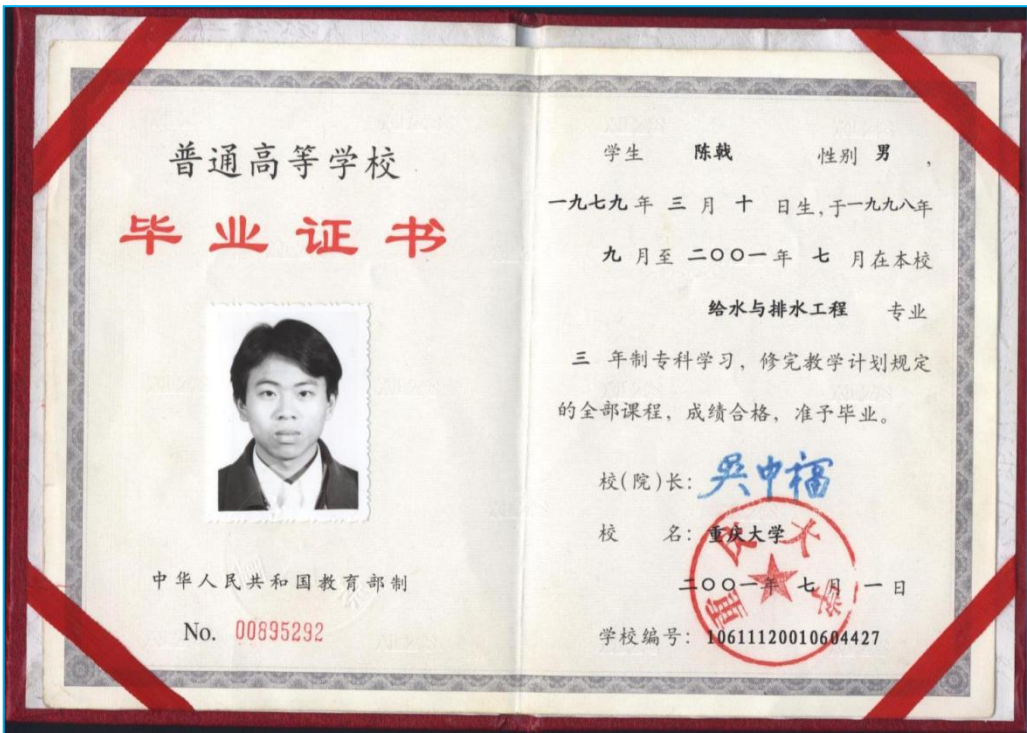 普通高等学校
毕业证书
中华人民共和国教育部制
No. 00895292
学生 陈戟 性别 男 ,
一九七九年 三 月 十 日生,于一九九八年
九 月至 二〇〇一年 七 月在本校
给水与排水工程 专业
三 年制专科学习，修完教学计划规定
的全部课程，成绩合格，准予毕业。
校(院)长：吴中福
校 名：重庆大学
二〇〇一年 七 月 一 日
学校编号：10611120010604427
重庆大学